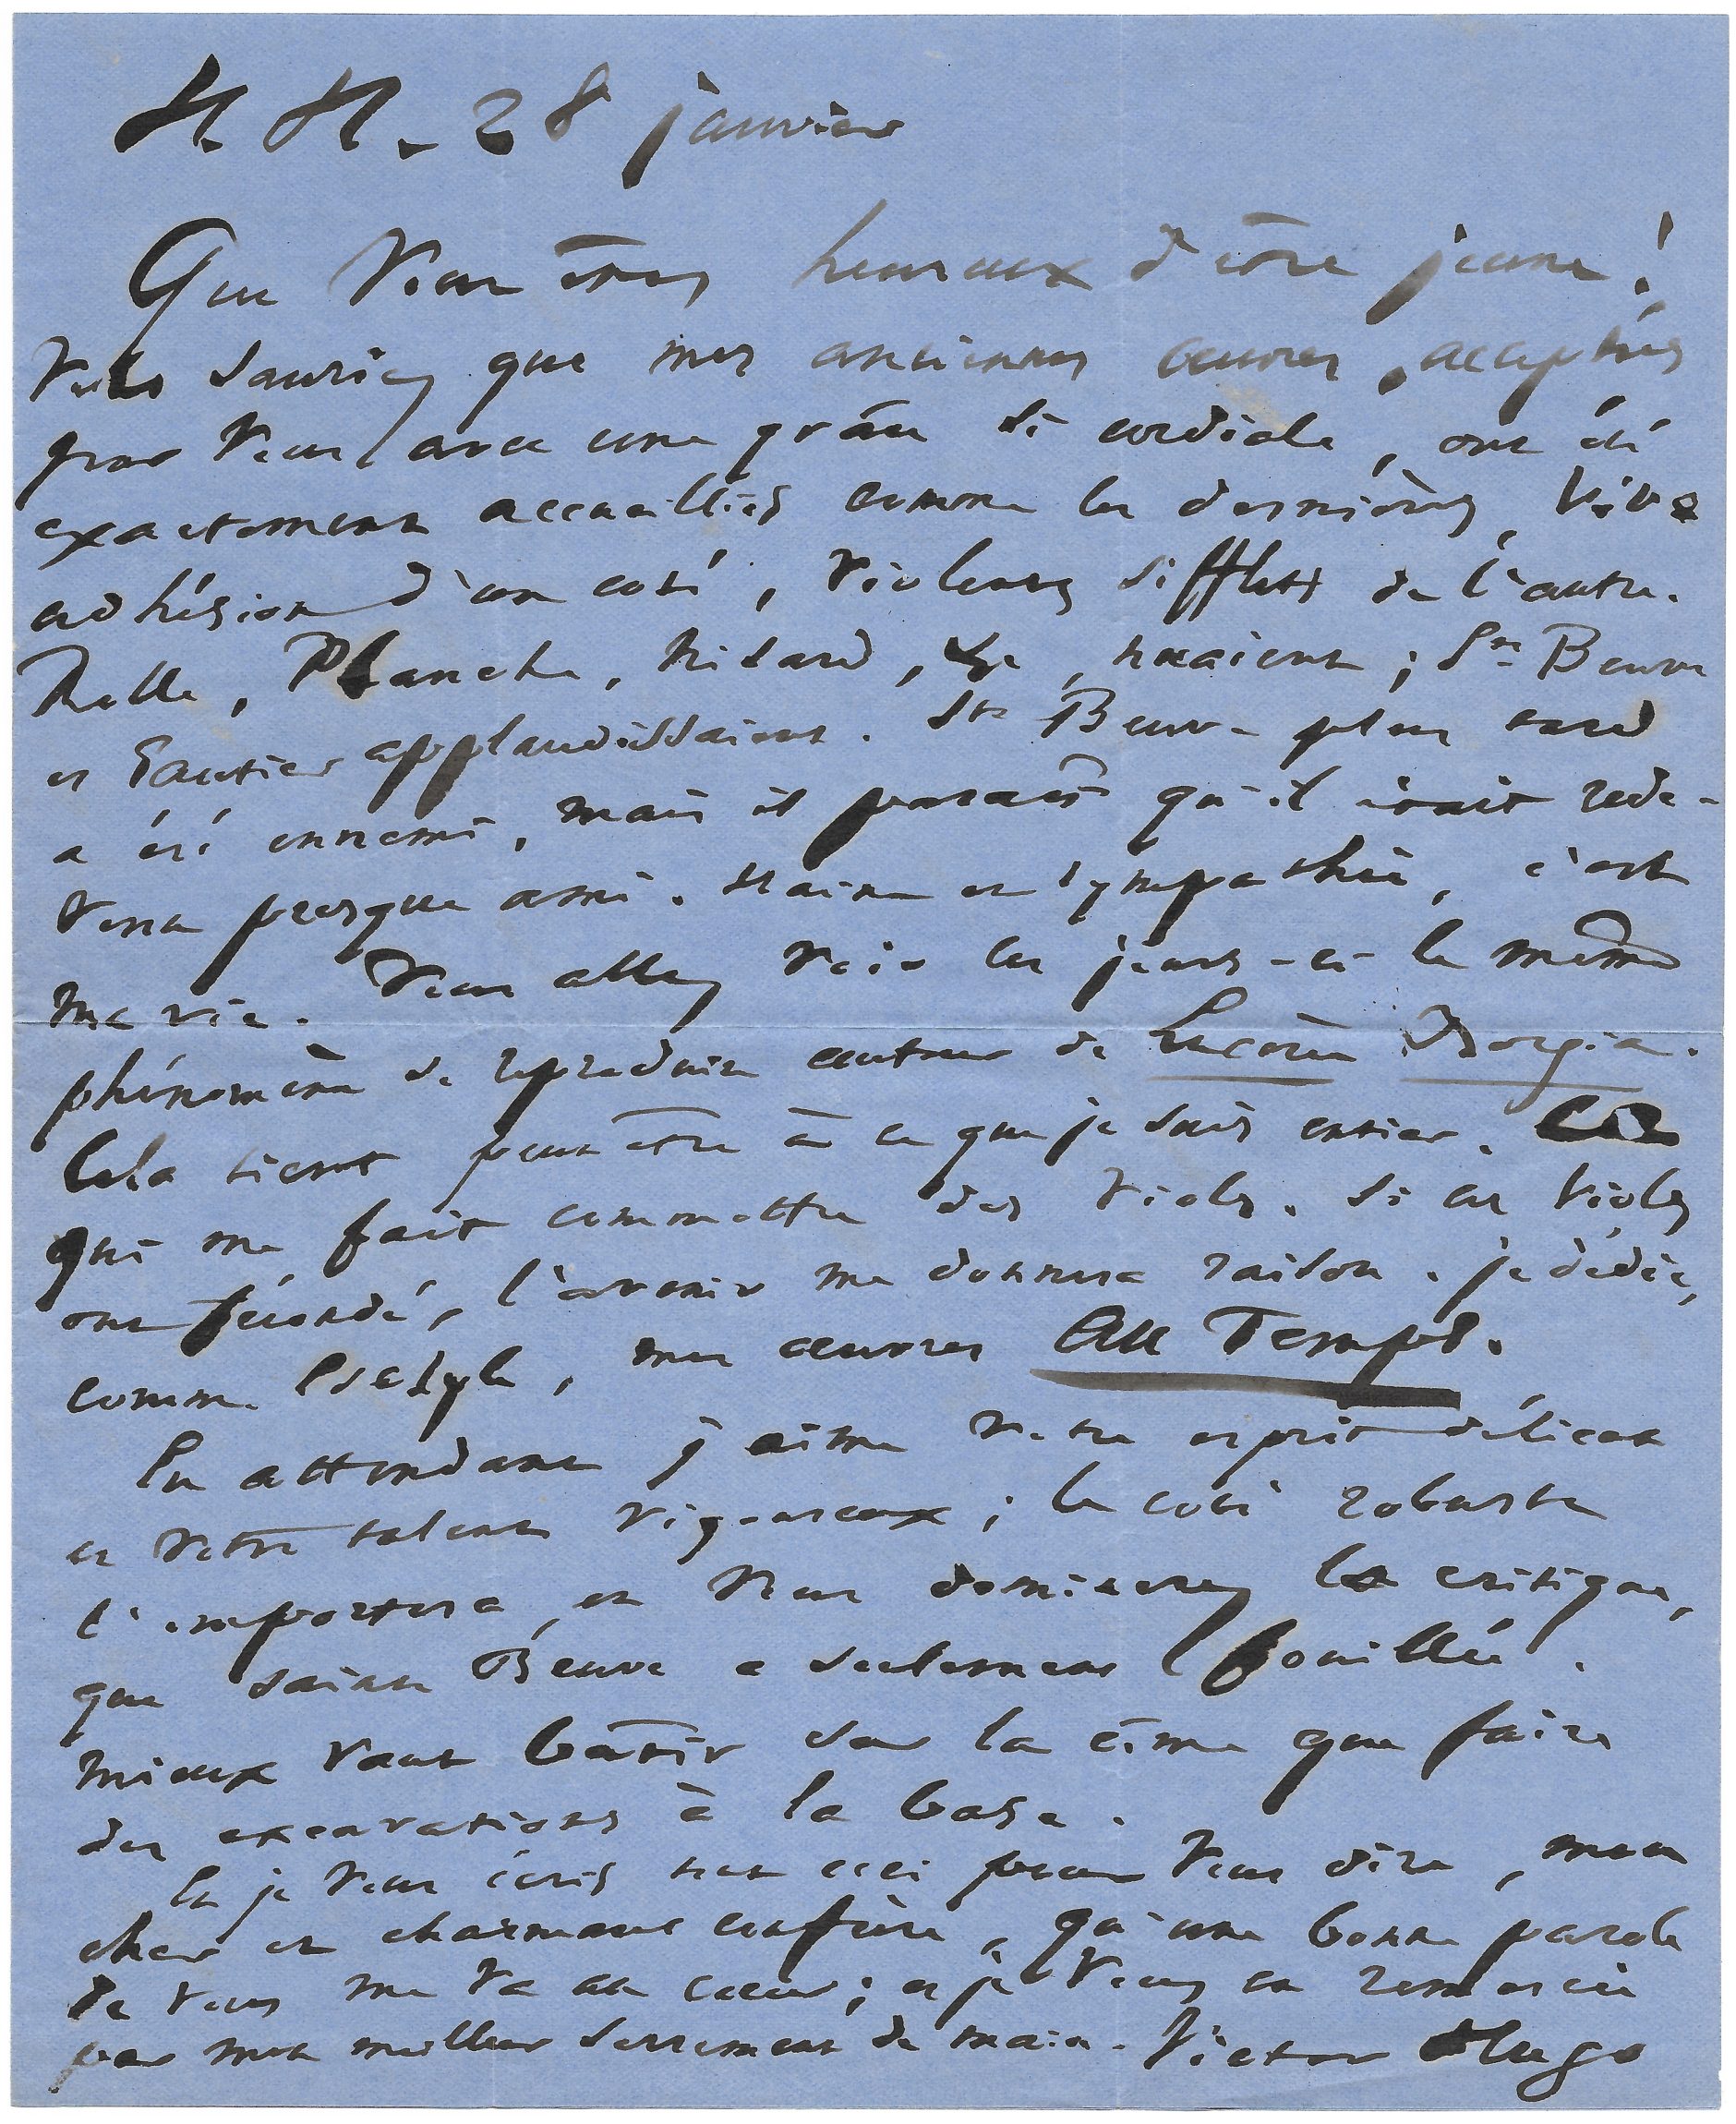 H. H. - 28 janvier
Que vous êtes heureux d'être jeune!
Vous sauriez que mes anciennes œuvres, acceptées
par vous avec une grâce si cordiale, ont été
exactement accueillies comme les dernières, vive
adhésion d'un côté, violents sifflets de l'autre.
Rolle, Planche, Nisard, &c, huaient; Ste Beuve
et Gautier applaudissaient. Ste Beuve plus tard
a été ennemi, mais il paraît qu'il était rede-
venu presque ami. Haine et sympathie, c'est
ma vie. Vous allez voir ces jours-ci le même
phénomène se reproduire autour de Lucrèce Borgia.
Cela tient peut être à ce que je suis entier. Ce
qui me fait commettre des viols. Si ces viols
ont fécondé, l'avenir me donnera raison. je dédie,
comme Eschyle, mes œuvres Au Temps.
En attendant j'aime votre esprit délicat
et votre talent vigoureux; le côté robuste
l'emportera et vous dominerez la critique,
que Sainte Beuve a seulement fouillée.
mieux vaut bâtir sur la cime que faire
des excavations à la base.
Et je vous écris tout ceci pour vous dire, mon
cher et charmant confrère, qu'une bonne parole
de vous me va au cœur; et je vous en remercie
par mon meilleur serrement de main. Victor Hugo